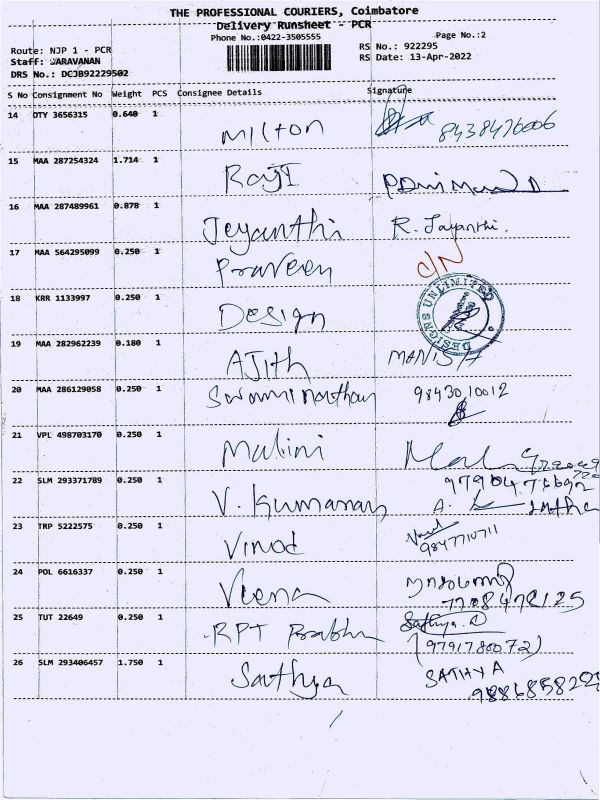 THE PROFESSIONAL COURIERS, Coimbatore
Delivery Runsheet - PCR
Phone No.:0422-3505555
Page No.:2
Route: NJP 1 - PCR
RS No.: 922295
Staff: SARAVANAN
RS Date: 13-Apr-2022
DRS No.: DCJB92229502
S No Consignment No Weight PCS Consignee Details Signature
14 DTY 3656315 0.640 1 Milton 8438476006
15 MAA 287254324 1.714 1 Raji
16 MAA 287489961 0.878 1 Jeyanthi R. Jayanthi.
17 MAA 564295099 0.250 1 Praveen C/N
18 KRR 1133997 0.250 1 Design DESIGNS UNLIMITED
19 MAA 282962239 0.180 1 AJith MANISH
20 MAA 286129058 0.250 1 Swaminathan 9843010012
21 VPL 498703170 0.250 1 Malini
22 SLM 293371789 0.250 1 V. Kumaran
23 TRP 5222575 0.250 1 Vinod 9847710711
24 POL 6616337 0.250 1 Veena 7708472125
25 TUT 22649 0.250 1 RPT Prabhu Sathya.
(9791780072)
26 SLM 293406457 1.750 1 Sathya SATHYA